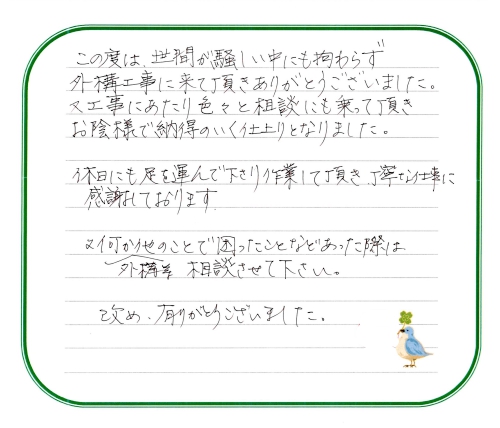 この度は、世間が騒しい中にも拘わらず
外構工事に来て頂きありがとうございました。
又工事にあたり色々と相談にも乗って頂き
お陰様で納得のいく仕上りとなりました。
休日にも足を運んで下さり作業して頂き丁寧な仕事に
感謝しております
又何か他のことで困ったことなどあった際は
外構等 相談させて下さい。
改め、有りがとうございました。